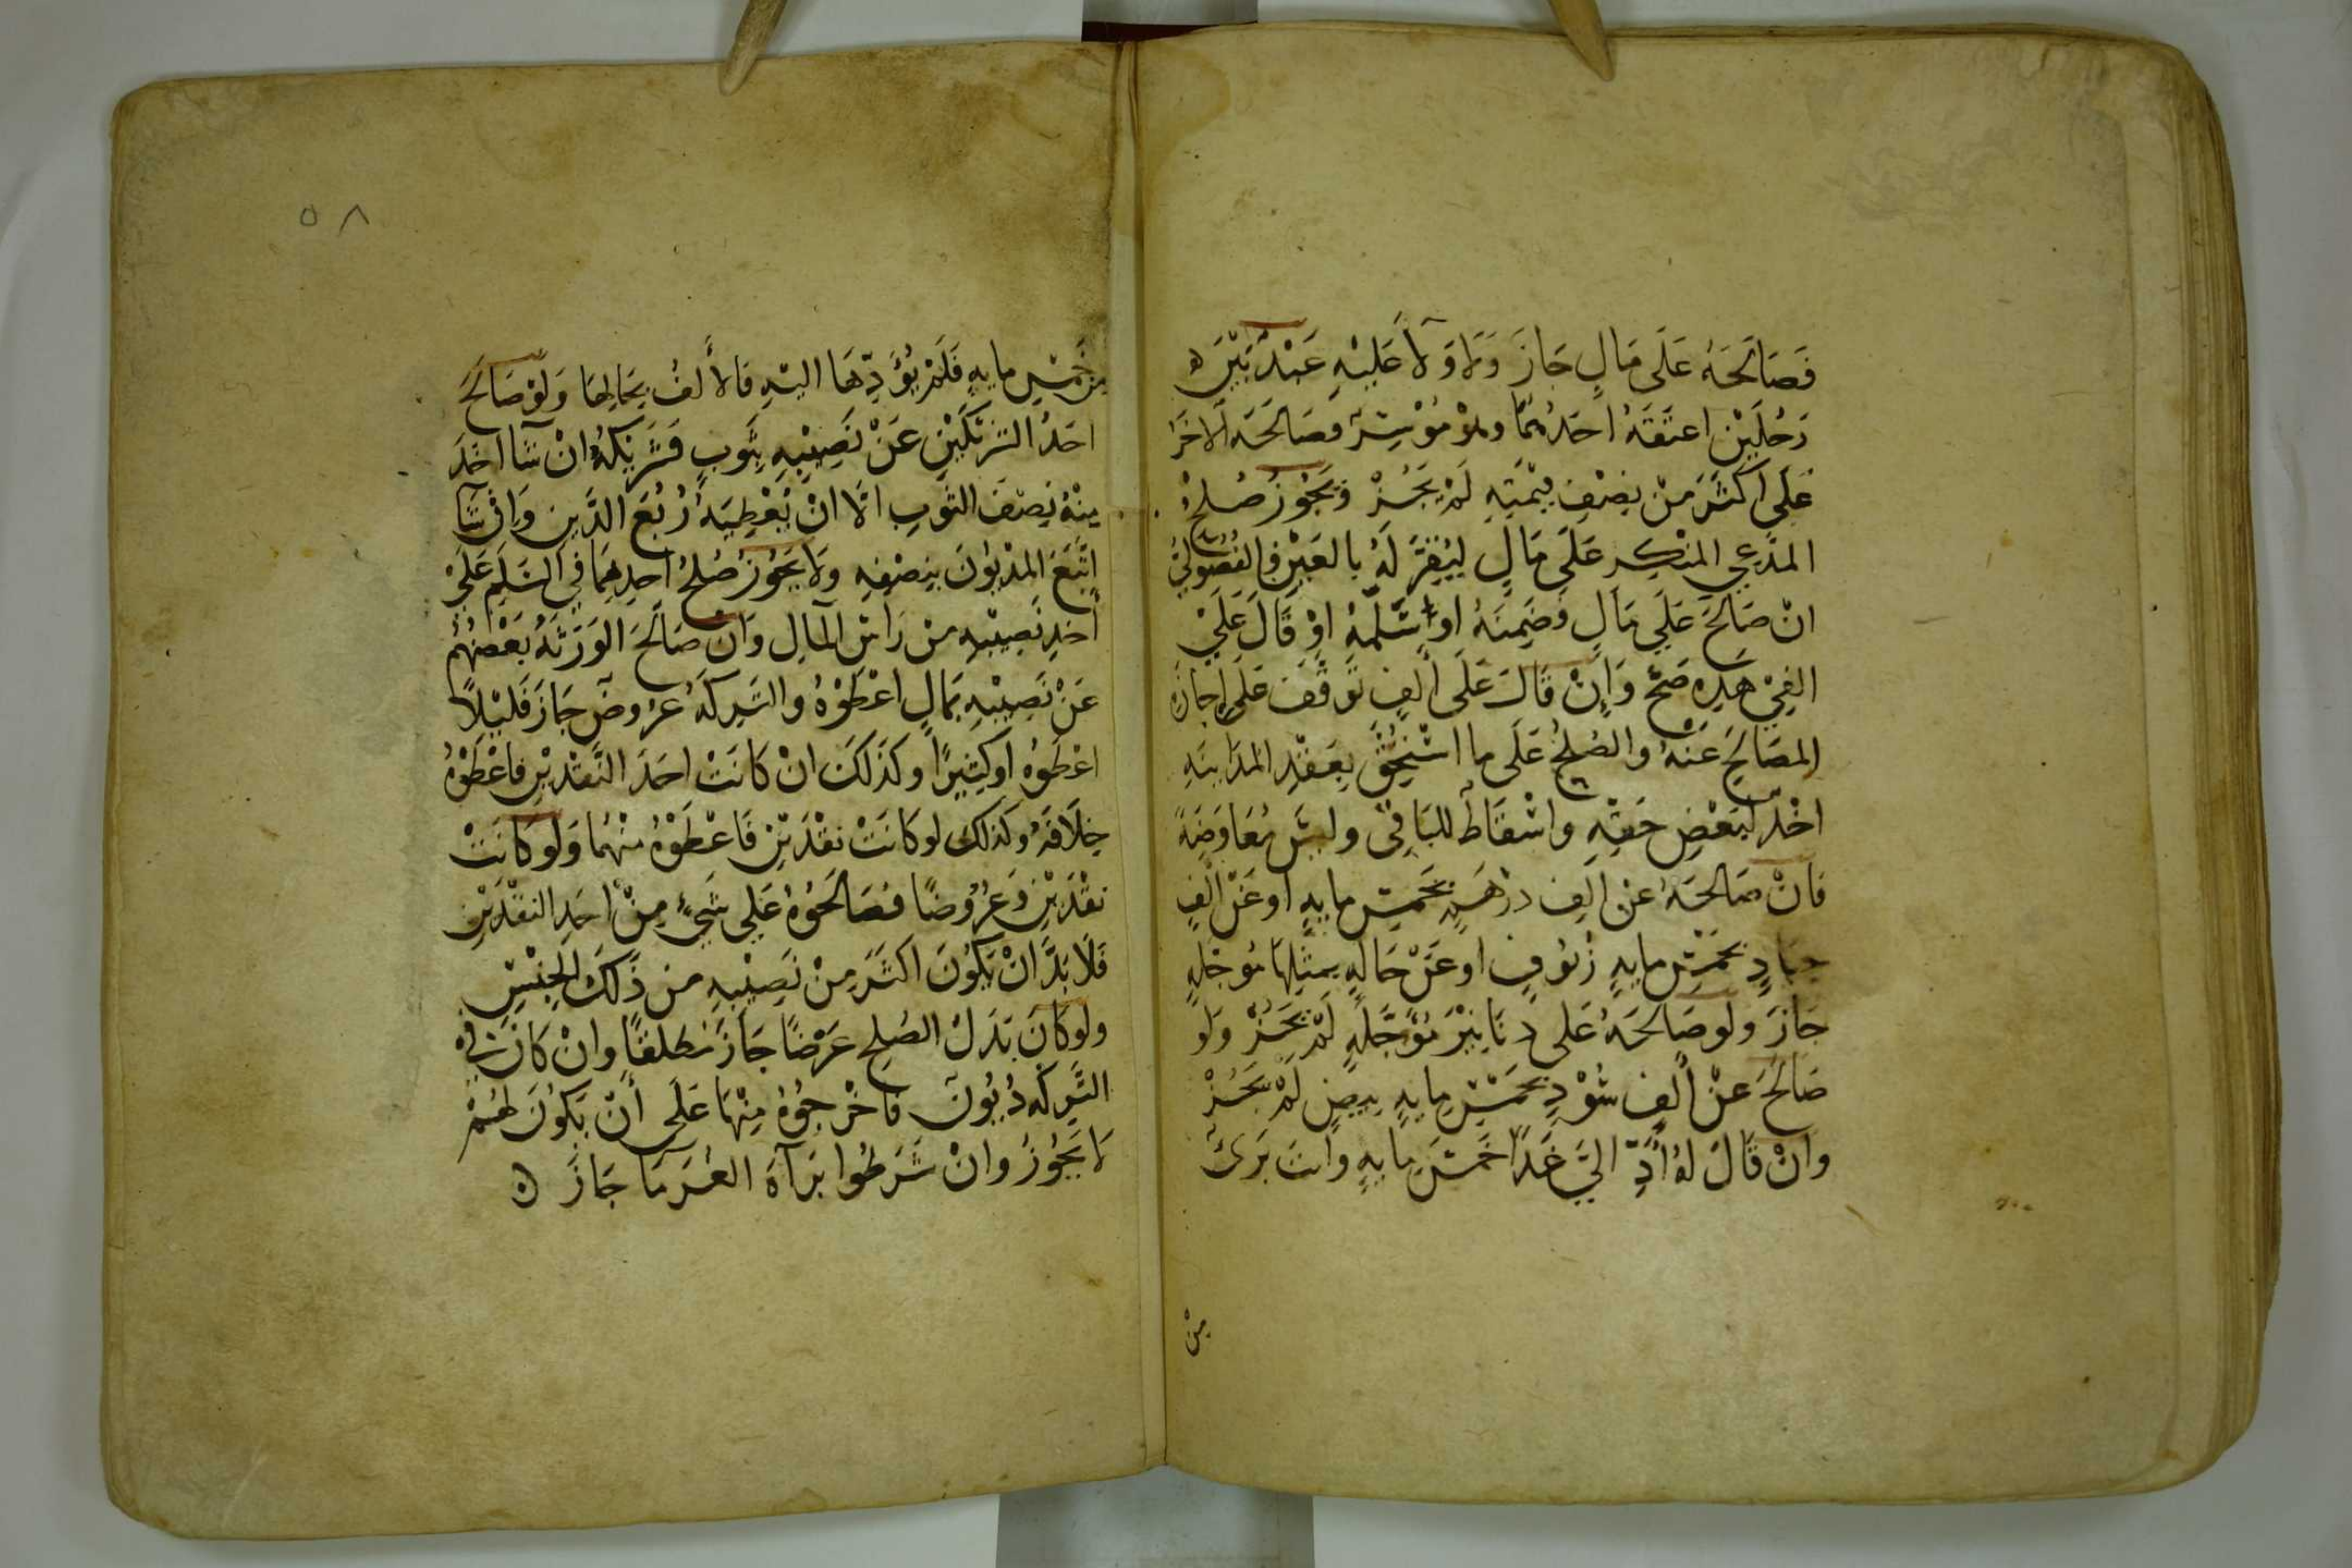 فَصَالَحَهُ عَلَى مَالٍ جَازَ وَلَا وَلَاءَ عَلَيْهِ عَبْدٌ بَيْنَ
رَجُلَيْنِ اعتَقَهُ احَدُهُمَا وهُوَ مُوْسِرٌ فصَالَحَهُ الآخَرُ
عَلَى اَكثَرَ مِنْ نِصْفِ قِيْمَتِهِ لَمْ يَجُزْ وَيَجُوزُ صُلحُ
المدَّعِي المنْكِرِ عَلَى مَالٍ لِيُقِرَّ لَهُ بالعَيْنِ فالفُضُولِيُّ
انْ صَالَحَ عَلَى مَالٍ وَضَمِنَهُ او سَلَّمَهُ اوْ قَالَ عَلَى
الفِيْ هَذِهِ صَحَّ وَاِنْ قَالَ عَلَى أَلفٍ تَوَقَّفَ عَلَى اِجازَةِ
المصَالَحِ عَنْهُ والصُلحُ عَلَى ما اسْتُحِقَّ بِعَقْدِ المدَايَنَةِ
اخْذٌ لبَعْضِ حَقِّهِ واسْقَاطٌ للبَاقِى وليسَ بمُعَاوَضَةٍ
فَانْ صَالحَهُ عنْ الفِ دِرْهَمٍ بخَمْسِ مايةٍ اوعَنْ الفٍ
جِيَادٍ بخَمْسِ مايةٍ زُيُوفٍ اوعَنْ حَالَّةٍ بمثلِهَا مُوجَّلةٍ
جَازَ ولو صَالحَهُ عَلى دَنَانِيْرَ مُؤَجَّلَةٍ لَمْ يَجُزْ وَلو
صَالَحَ عنْ أَلفٍ سُوْدٍ بخَمْسِ مايةٍ بِيضٍ لَمْ يَجُزْ
وانْ قَالَ لهُ أَدِّ اليَّ غَدًا خَمْسَ مايةٍ وانتَ بَرىٌ
مِنْ
٥٨
مِنْ خَمْسِ مايةٍ فَلَمْ يُؤَدِّهَا اليْهِ فَالأَلفُ بِحَالِهَا وَلَوْ صَالَحَ
احَدُ الشَرِيْكَيْنِ عَنْ نَصِيْبِهِ بِثَوبٍ فَشَرِيْكُهُ انْ شَا اخَذَ
مِنْهُ نِصْفَ الثَوبِ الَّا انْ يُعْطِيَهُ رُبُعَ الدَّينِ وَاِنْ شَا
اتَّبَعَ المدْيُوْنَ بنِصْفِهِ وَلَا يَجُوْزُ صُلحُ احَدِهِمَا فِي السَّلَمِ عَلَى
أخذِ نَصِيْبِهِ منْ رَاسِ المَالِ وَانْ صَالَحَ الوَرَثَةُ بَعْضُهُمْ
عَنْ نَصِيْبِهِ بمَالٍ اعْطَوْهُ والتَرِكَةُ عرُوضٌ جَازَ قَلِيْلًا
اعْطَوهُ اوكثِيْرًا وكَذَلكَ انْ كَانَتْ احَدَ النَّقْدَيْنِ فاعْطَوْهُ
خِلَافَهُ وكَذلكَ لو كَانَتْ نقْدَيْنِ فَاعْطَوْهُ مِنْهُمَا وَلو كَانَتْ
نقْدَيْنِ وَعرُوْضًا فصَالَحُوْهُ عَلى شَيْءٍ مِنْ احَدِ النقْدَيْنِ
فَلَا بدَّ انْ يَكُوْنَ اكثَرَ مِنْ نَصِيْبِهِ مِن ذَلكَ الجِنْسِ
ولوكَانَ بَدَلُ الصُلحِ عَرْضًا جَازَ مُطلقًا وانْ كَانَ فِي
التَرِكَةِ دُيُوْنٌ فَاخْرجُوْهُ مِنْهَا عَلَى أنْ يَكُوْنَ لهُمْ
لا يَجُوْزُ وانْ شَرَطُوا بَرآةَ الغُرَمَا جَازَ